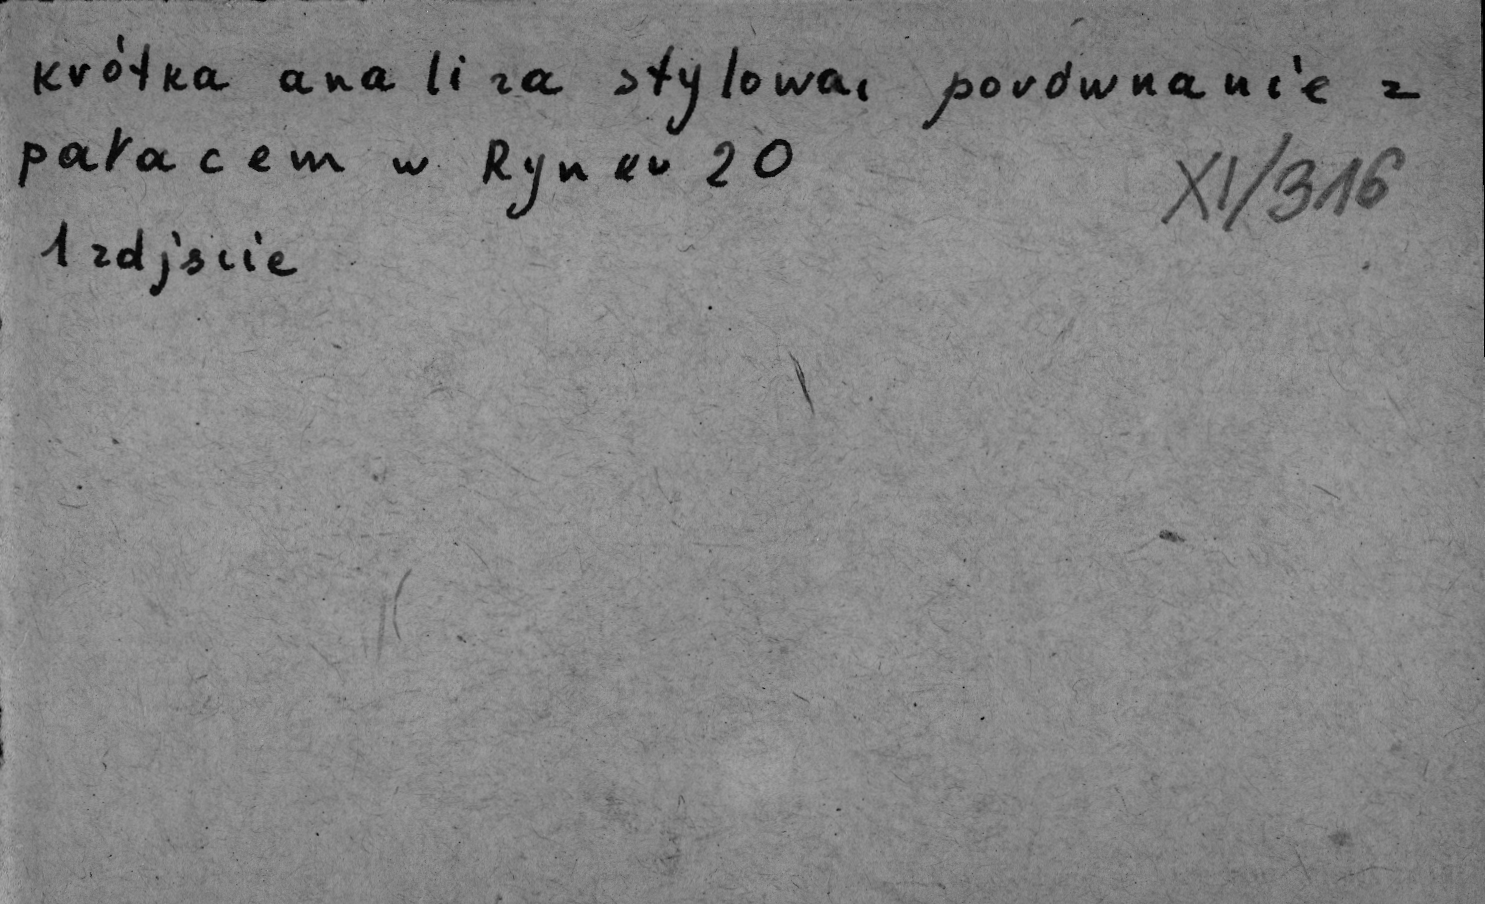 krótka analiza stylowa, porównanie z
pałacem w Rynku 20
XI/316
1 zdjście